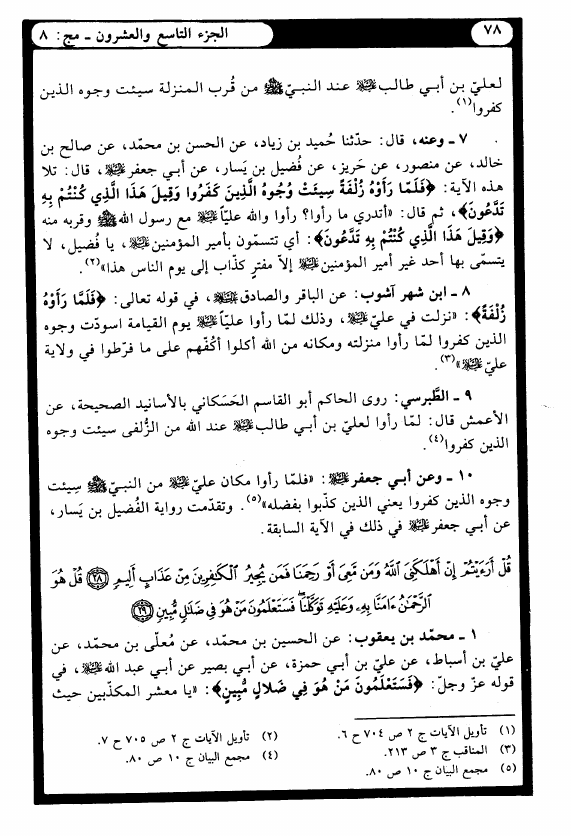 ٧٨
الجزء التاسع والعشرون ـ مج: ٨
لعليّ بن أبي طالب عليه السلام عند النبيّ صلى الله عليه وآله وسلم من قُرب المنزلة سيئت وجوه الذين
كفروا(١).
٧ ـ وعنه، قال: حدّثنا حُميد بن زياد، عن الحسن بن محمّد، عن صالح بن
خالد، عن منصور، عن حَريز، عن فُضيل بن يَسار، عن أبي جعفر عليه السلام، قال: تلا
هذه الآية: ﴿فَلَمَّا رَأَوْهُ زُلْفَةً سِيئَتْ وُجُوهُ الَّذِينَ كَفَرُوا وَقِيلَ هَذَا الَّذِي كُنْتُمْ بِهِ
تَدَّعُونَ﴾، ثم قال: «أتدري ما رأوا؟ رأوا والله عليّاً عليه السلام مع رسول الله صلى الله عليه وآله وسلم وقربه منه
﴿وَقِيلَ هَذَا الَّذِي كُنْتُمْ بِهِ تَدَّعُونَ﴾: أي تتسمّون بأمير المؤمنين عليه السلام، يا فُضيل، لا
يتسمّى بها أحد غير أمير المؤمنين عليه السلام إلاّ مفترٍ كذّاب إلى يوم الناس هذا»(٢).
٨ ـ ابن شهر آشوب: عن الباقر والصادق عليهما السلام، في قوله تعالى: ﴿فَلَمَّا رَأَوْهُ
زُلْفَةً﴾: «نزلت في عليّ عليه السلام، وذلك لمّا رأوا عليّاً عليه السلام يوم القيامة اسودّت وجوه
الذين كفروا لمّا رأوا منزلته ومكانه من الله أكلوا أكُفّهم على ما فرّطوا في ولاية
عليّ عليه السلام»(٣).
٩ ـ الطَّبرسي: روى الحاكم أبو القاسم الحَسَكاني بالأسانيد الصحيحة، عن
الأعمش قال: لمّا رأوا لعليّ بن أبي طالب عليه السلام عند الله من الزُّلفى سيئت وجوه
الذين كفروا(٤).
١٠ ـ وعن أبي جعفر عليه السلام: «فلمّا رأوا مكان عليّ عليه السلام من النبيّ صلى الله عليه وآله وسلم سِيئت
وجوه الذين كفروا يعني الذين كذّبوا بفضله»(٥). وتقدّمت رواية الفُضيل بن يَسار،
عن أبي جعفر عليه السلام في ذلك في الآية السابقة.
قُلْ أَرَءَيْتُمْ إِنْ أَهْلَكَنِىَ ٱللَّهُ وَمَن مَّعِىَ أَوْ رَحِمَنَا فَمَن يُجِيرُ ٱلْكَٰفِرِينَ مِنْ عَذَابٍ أَلِيمٍ ﴿٢٨﴾ قُلْ هُوَ
ٱلرَّحْمَٰنُ ءَامَنَّا بِهِۦ وَعَلَيْهِ تَوَكَّلْنَا ۖ فَسَتَعْلَمُونَ مَنْ هُوَ فِى ضَلَٰلٍ مُّبِينٍ ﴿٢٩﴾
١ ـ محمّد بن يعقوب: عن الحسين بن محمّد، عن مُعلّى بن محمّد، عن
عليّ بن أسباط، عن عليّ بن أبي حمزة، عن أبي بصير عن أبي عبد الله عليه السلام، في
قوله عزّ وجلّ: ﴿فَسَتَعْلَمُونَ مَنْ هُوَ فِي ضَلالٍ مُّبِينٍ﴾: «يا معشر المكذّبين حيث
(١) تأويل الآيات ج ٢ ص ٧٠٤ ح ٦. (٢) تأويل الآيات ج ٢ ص ٧٠٥ ح ٧.
(٣) المناقب ج ٣ ص ٢١٣. (٤) مجمع البيان ج ١٠ ص ٨٠.
(٥) مجمع البيان ج ١٠ ص ٨٠.